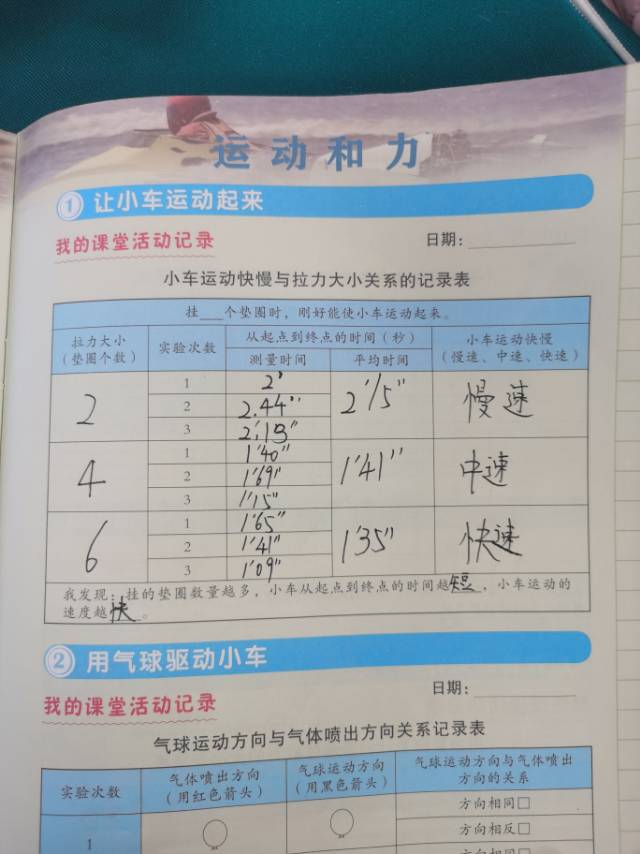 运动和力
1 让小车运动起来
我的课堂活动记录 日期：
小车运动快慢与拉力大小关系的记录表
挂___个垫圈时，刚好能使小车运动起来。
拉力大小（垫圈个数） 实验次数 从起点到终点的时间（秒） 小车运动快慢（慢速、中速、快速）
测量时间 平均时间
2 1 2' 2'15" 慢速
2 2.44''
3 2'.15"
4 1 1'40" 1'41'' 中速
2 1'69"
3 1'15"
6 1 1'65" 1'35" 快速
2 1'41"
3 1'09"
我发现：挂的垫圈数量越多，小车从起点到终点的时间越短，小车运动的
速度越快。
2 用气球驱动小车
我的课堂活动记录 日期：
气球运动方向与气体喷出方向关系记录表
实验次数 气体喷出方向（用红色箭头） 气球运动方向（用黑色箭头） 气球运动方向与气体喷出方向的关系
1 方向相同□
方向相反□